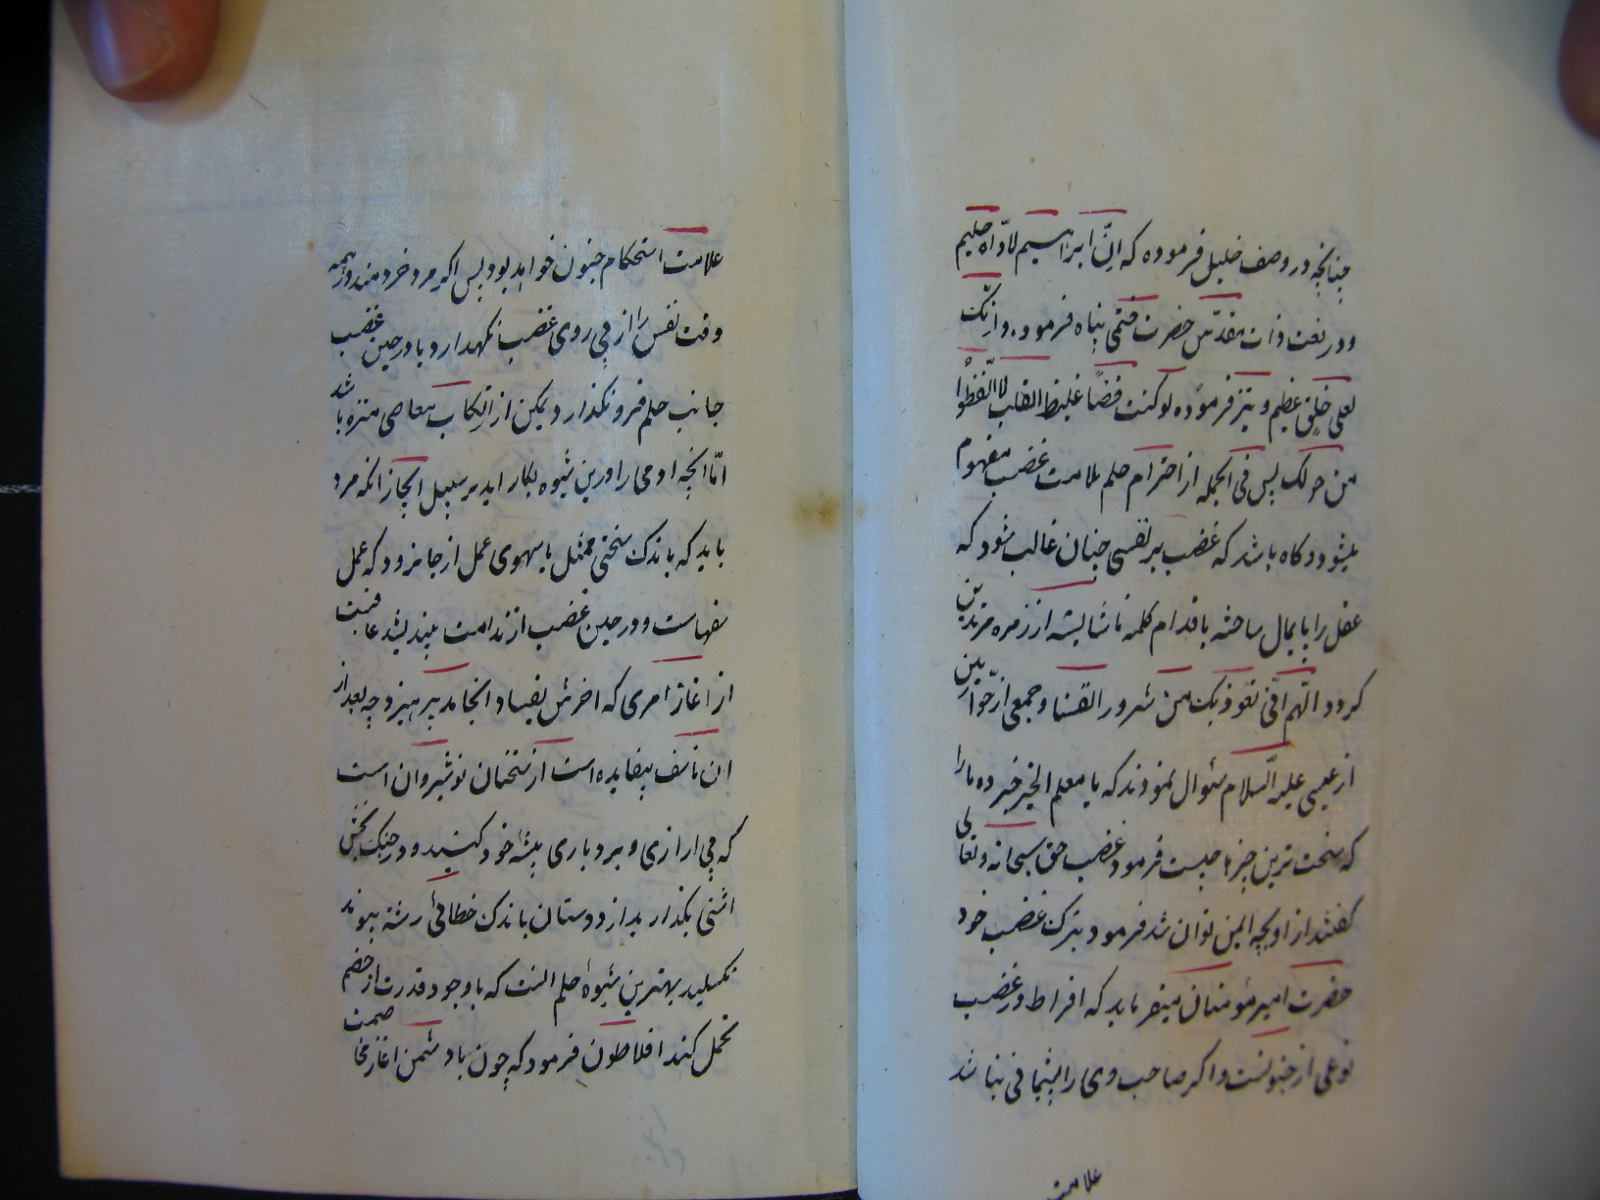 چنانچه در وصف خلیل فرموده که انّ ابراهیم لاوّاه حلیم
و در نعت ذات مقدّس حضرت ختمی پناه فرموده وانک
لعلی خلق عظیم و نیز فرموده لوکنت فضّا غلیظ القلب لاانفظّوا
من حولک پس فی الجمله از احترام حلم ملامت غضب مفهوم
میشود و کاه باشد که غضب بر نفسی چنان غالب شود که
عقل را پایمال ساخته باقدام کلمه ناشایسته از زمره مرتدین
کردد اللّهم انّی نعوذ بک من شرور انفسنا و جمعی از حوّاریین
از عیسی علیه السّلام سئوال نمودند که یا معلم الخیر خبر ده ما را
که سخت ترین چیزها چیست فرمود غضب حق سبحانه و تعالی
کفتند از او بچه ایمن توان شد فرمود بترک غضب خود
حضرت امیر مؤمنان میفرماید که افراط در غضب
نوعی از جنونست و اکر صاحب وی را پشیمانی نباشد
علامت
علامت استحکام جنون خواهد بود پس اکر مرد خردمند در همه
وقت نفس را از پی روی غضب نکهدارد یا در حین غضب
جانب حلم فرو نکذارد یمکن از ارتکاب معاصی منزه باشد
امّا آنچه اومی را درین شیوه بکار اید بر سبیل ایجاز انکه مرد
باید که باندک سخنی ممثل یا سهوی عمل از جا نرود که عمل
سفهاست و در حین غضب از ندامت بیندیشد عاقبت
از اغاز امری که اخرش بفساد انجامد بپرهیزد چه بعد از
ان تاسف بیفایده است از سخنان نوشیروان است
که بی ازاری و بردباری پیشهٔ خود کنید و در جنک بخش
اشتی بکذارید از دوستان باندک خطائی رشته پیوند
نکسلید بهترین شیوهٔ حلم انست که با وجود قدرت از خصم
تحمل کند افلاطون فرمود که چون با دشمن اغاز مخاصمت